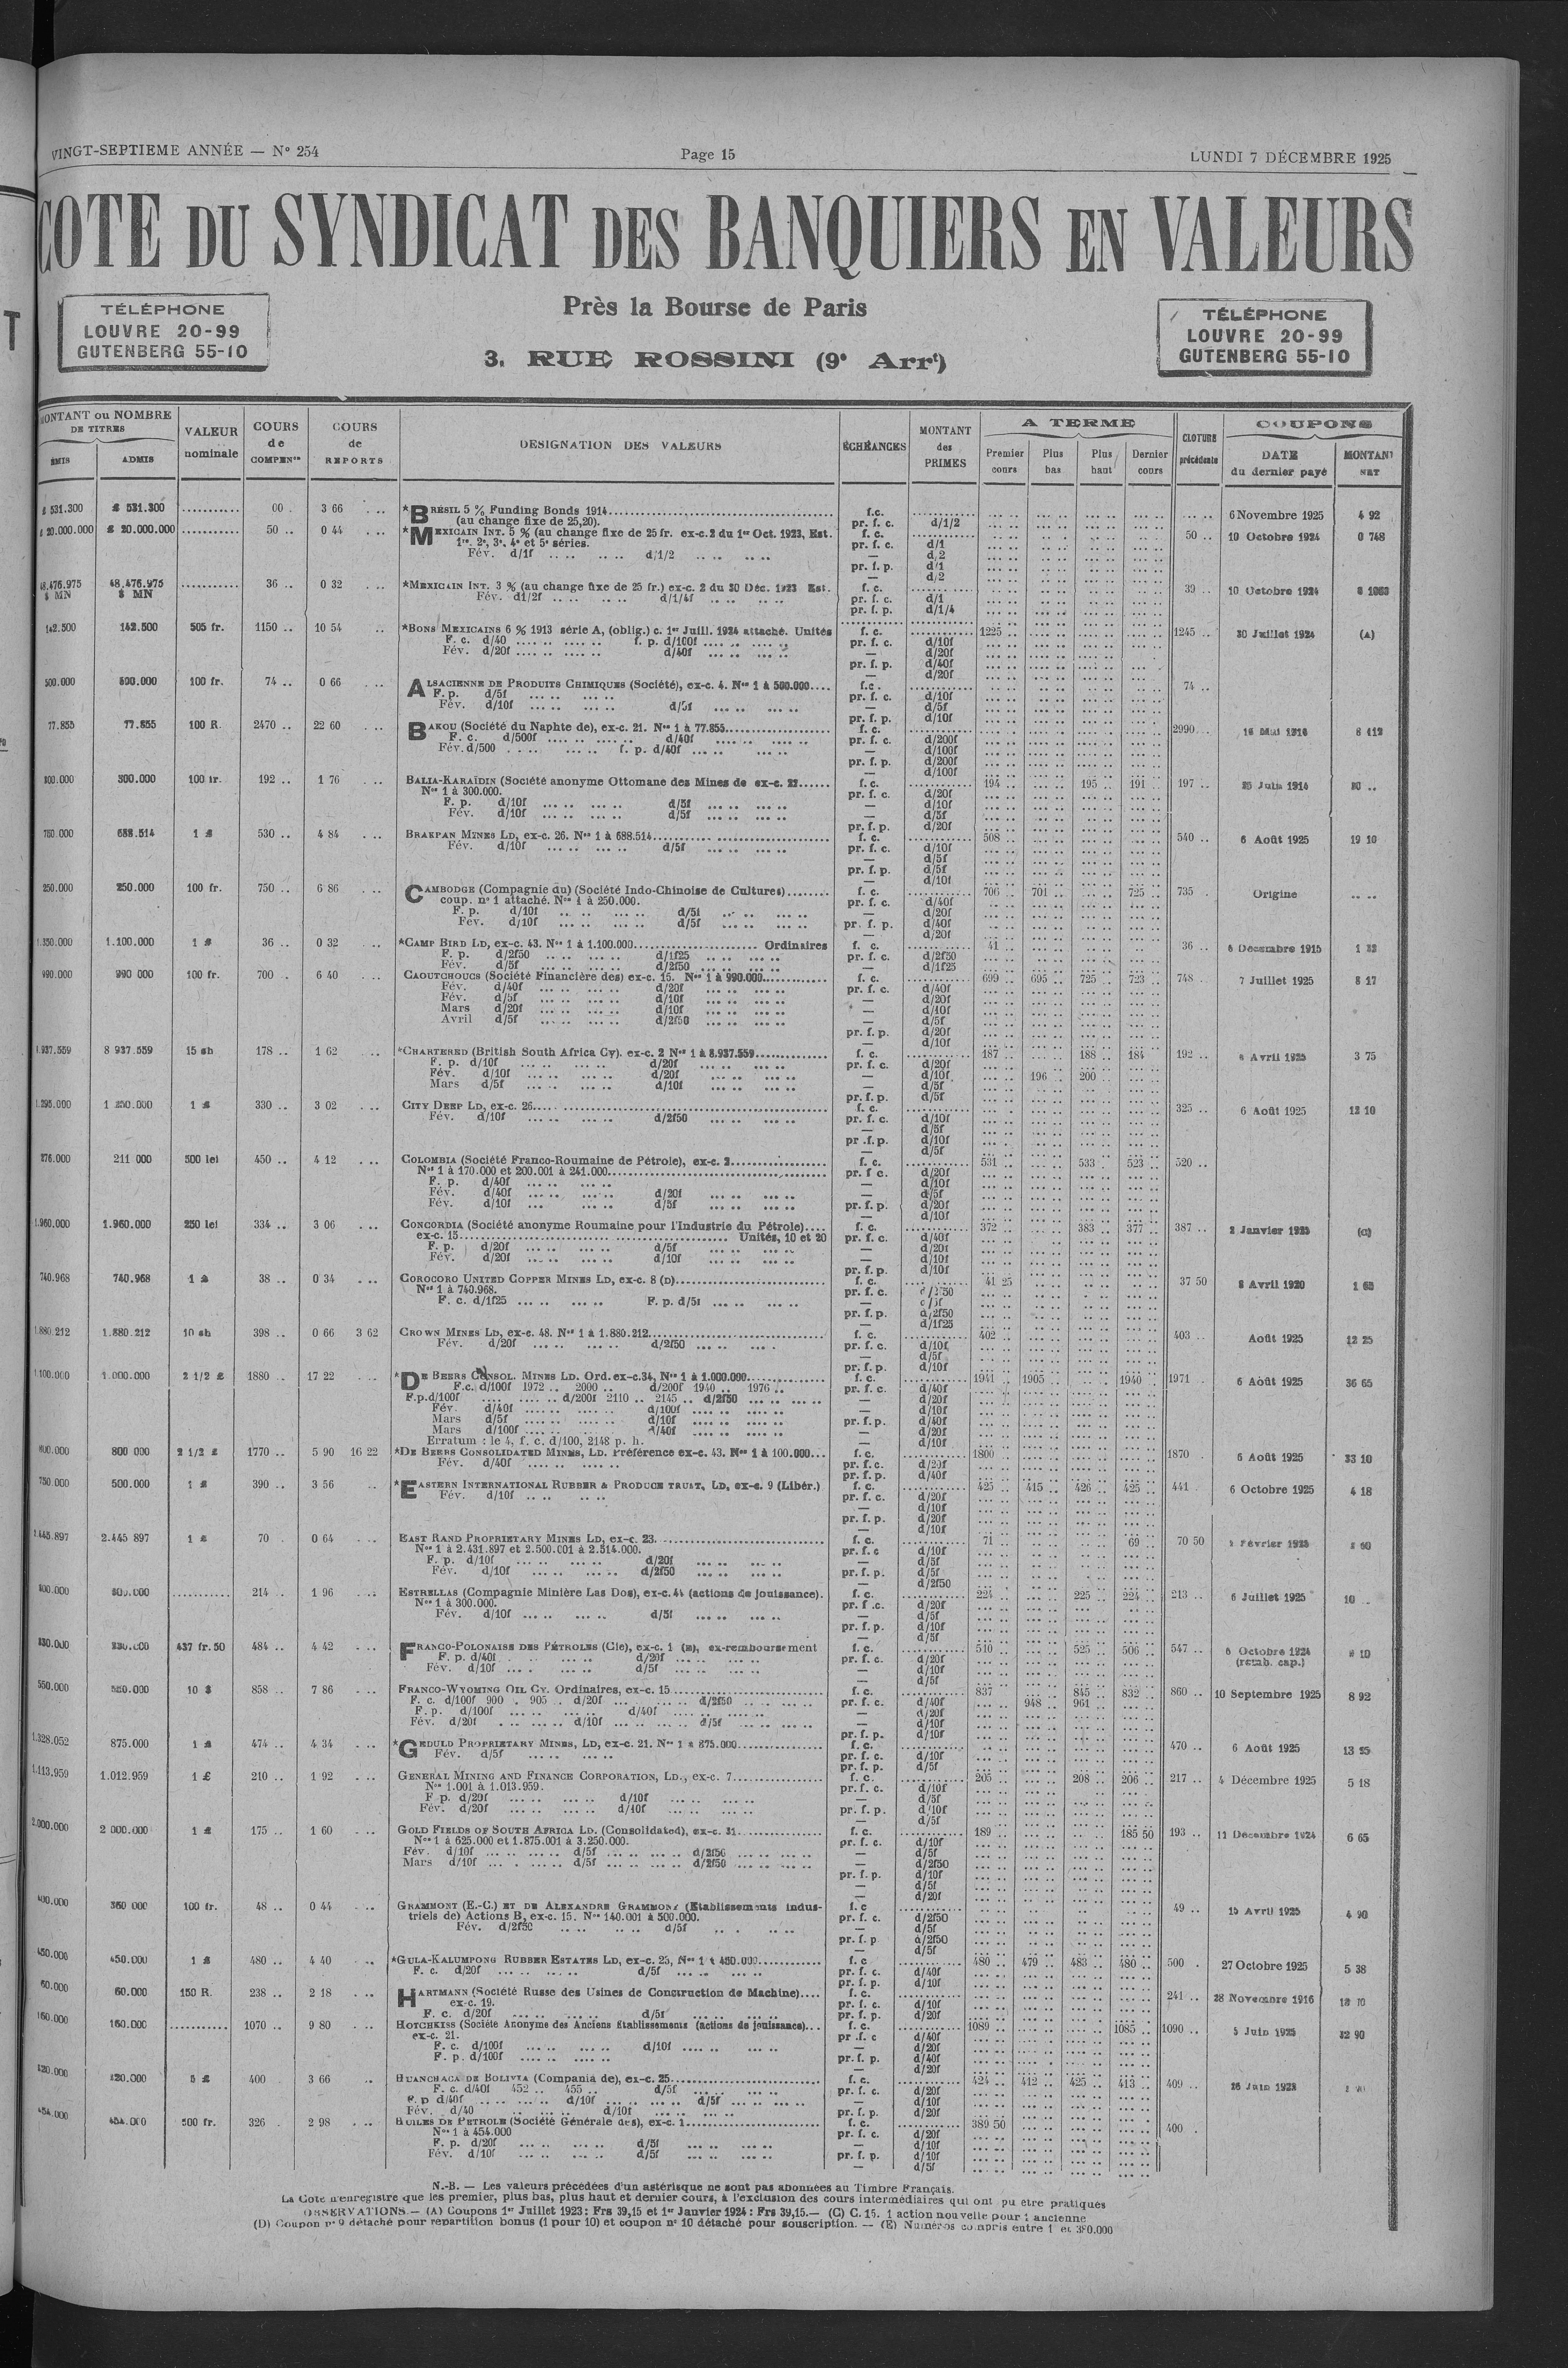 VINGT-SEPTIEME ANNÉE — N° 254 Page 15 LUNDI 7 DÉCEMBRE 1925
COTE DU SYNDICAT DES BANQUIERS EN VALEURS
Près la Bourse de Paris
3, RUE ROSSINI (9e Arrt)
TÉLÉPHONE
LOUVRE 20-99
GUTENBERG 55-10
TÉLÉPHONE
LOUVRE 20-99
GUTENBERG 55-10
MONTANT ou NOMBRE DE TITRES
ÉMIS ADMIS
VALEUR nominale
COURS de COMPENon
COURS de REPORTS
DÉSIGNATION DES VALEURS
ÉCHÉANCES
MONTANT des PRIMES
A TERME
Premier cours Plus bas Plus haut Dernier cours
CLOTURE précédente
COUPONS
DATE du dernier payé MONTANT NET
£ 531.300 £ 531.300 3 66 *BRÉSIL 5 % Funding Bonds 1914 f.c. 6 Novembre 1925 4 92
(au change fixe de 25,20). pr. f. c. d/1/2
£ 20.000.000 £ 20.000.000 50 .. 0 44 *MEXICAIN INT. 5 % (au change fixe de 25 fr. ex-c.2 du 1er Oct. 1923, Est. f. c. 50 .. 10 Octobre 1924 0 748
1re, 2e, 3e, 4e et 5e séries. pr. f. c. d/1
Fév. d/1f d/1/2
48.476.975 $ MN 48.476.975 $ MN 36 .. 0 32 *MEXICAIN INT. 3 % (au change fixe de 25 fr.) ex-c. 2 du 30 Déc. 1923 Est. f. c. 39 .. 10 Octobre 1924
Fév. d1/2f d/1/4f pr. f. c. d/1
pr. f. p. d/1/4
142.500 142.500 505 fr. 1150 .. 10 54 *BONS MEXICAINS 6 % 1913 série A, (oblig.) c. 1er Juill. 1924 attaché. Unités f. c. 1225 .. 1245 .. 30 Juillet 1924 (A)
F. c. d/40 f. p. d/100f pr. f. c. d/10f
Fév. d/20f d/40f — d/20f
pr. f. p. d/40f
— d/20f
500.000 500.000 100 fr. 74 .. 0 66 ALSACIENNE DE PRODUITS CHIMIQUES (Société), ex-c. 4. Nos 1 à 500.000 f.c. 74 ..
F. p. d/5f pr. f. c. d/10f
Fév. d/10f d/5f — d/5f
pr. f. p. d/10f
77.855 77.855 100 R. 2470 .. 22 60 BAKOU (Société du Naphte de), ex-c. 21. Nos 1 à 77.855 f. c. 2990 8 412
F. c. d/500f d/40f pr. f. c. d/200f
Fév. d/500 f. p. d/40f — d/100f
pr. f. p. d/200f
— d/100f
300.000 300.000 100 fr. 192 .. 1 76 BALIA-KARAÏDIN (Société anonyme Ottomane des Mines de ex-c. 22 f. c. 194 .. 195 .. 191 .. 197 .. 25 Juin 1914 20 ..
Nos 1 à 300.000. pr. f. c. d/20f
F. p. d/10f d/5f — d/10f
Fév. d/10f d/5f — d/5f
pr. f. p. d/20f
750.000 688.514 1 £ 530 .. 4 84 BRAKPAN MINES LD, ex-c. 26. Nos 1 à 688.514 f. c. 508 540 .. 6 Août 1925 19 10
Fév. d/10f d/5f pr. f. c. d/10f
— d/5f
pr. f. p. d/5f
— d/10f
250.000 250.000 100 fr. 750 .. 6 86 CAMBODGE (Compagnie du) (Société Indo-Chinoise de Cultures) f. c. 706 .. 701 .. 725 .. 735 Origine
coup. n° 1 attaché. Nos 1 à 250.000. pr. f. c. d/40f
F. p. d/10f d/5f — d/20f
Fév. d/10f d/5f pr. f. p. d/40f
— d/20f
1.350.000 1.100.000 1 £ 36 .. 0 32 *CAMP BIRD LD, ex-c. 43. Nos 1 à 1.100.000 Ordinaires f. c. 41 36 .. 6 Décembre 1915
F. p. d/2f50 d/1f25 pr. f. c. d/2f50
Fév. d/5f d/2f50 — d/1f25
990.000 990 000 100 fr. 700 . 6 40 CAOUTCHOUCS (Société Financière des) ex-c. 15. Nos 1 à 990.000 f. c. 699 .. 695 .. 725 .. 723 .. 748 .. 7 Juillet 1925 8 17
Fév. d/40f d/20f pr. f. c. d/40f
Fév. d/5f d/10f — d/20f
Mars d/20f d/10f — d/10f
Avril d/5f d/2f50 — d/5f
pr. f. p. d/20f
— d/10f
8 937.559 15 sh 178 .. 1 62 *CHARTERED (British South Africa Cy). ex-c. 2 Nos 1 à 8.937.559 f. c. 187 .. 188 .. 184 192 .. Avril 1925 3 75
F. p. d/10f d/20f pr. f. c. d/20f
Fév. d/10f d/20f — d/10f 196 .. 200 ..
Mars d/5f d/10f — d/5f
pr. f. p. d/5f
1.295.000 1 250.000 1 £ 330 .. 3 02 CITY DEEP LD, ex-c. 26 f. c. 325 .. 6 Août 1925 12 10
Fév. d/10f d/2f50 pr. f. c. d/10f
— d/5f
pr .f. p. d/10f
— d/5f
276.000 211 000 500 lei 450 .. 4 12 COLOMBIA (Société Franco-Roumaine de Pétrole), ex-c. 2 f. c. 531 .. 533 . 523 .. 520 ..
Nos 1 à 170.000 et 200.001 à 241.000 pr. f c. d/20f
F. p. d/40f — d/10f
Fév. d/40f d/20f — d/5f
Fév. d/10f d/5f pr. f. p. d/20f
— d/10f
1.960.000 1.960.000 250 lei 334 .. 3 06 CONCORDIA (Société anonyme Roumaine pour l'Industrie du Pétrole) f. c. 372 .. 383 .. 377 .. 387 .. 2 Janvier 1925
ex-c. 15 Unités, 10 et 20 pr. f. c. d/40f
F. p. d/20f d/5f — d/20f
Fév. d/20f d/10f — d/10f
pr. f. p. d/10f
740.968 740.968 1 £ 38 .. 0 34 COROCORO UNITED COPPER MINES LD, ex-c. 8 (D) f. c. 41 25 37 50 8 Avril 1920 1 65
Nos 1 à 740.968. pr. f. c. d/2f50
F. c. d/1f25 F. p. d/5f — d/5f
pr. f. p. d/2f50
— d/1f25
1.880.212 1.880.212 10 sh 398 .. 0 66 3 62 CROWN MINES LD, ex-c. 48. Nos 1 à 1.880.212 f. c. 402 403 .. Août 1925 12 25
Fév. d/20f d/2f50 pr. f. c. d/10f
— d/5f
pr. f. p. d/10f
1.100.000 1.000.000 2 1/2 £ 1880 .. 17 22 *DE BEERS CONSOL. MINES LD. Ord. ex-c.34, Nos 1 à 1.000.000 f. c. 1941 .. 1905 .. 1940 .. 1971 . 6 Août 1925 36 65
F.c. d/100f 1972 .. 2000 .. d/200f 1940 .. 1976 .. pr. f. c. d/40f
F.p. d/100f d/200f 2110 .. 2145 .. d/2f50 — d/20f
Fév. d/40f d/100f — d/10f
Mars d/5f d/10f pr. f. p. d/40f
Mars d/100f d/40f — d/20f
Erratum : le 4, f. c. d/100, 2148 p. h. — d/10f
800.000 800 000 2 1/2 £ 1770 .. 5 90 16 22 *DE BEERS CONSOLIDATED MINES, LD. Préférence ex-c. 43. Nos 1 à 100.000 f. c. 1800 1870 . 6 Août 1925 33 10
Fév. d/40f pr. f. c. d/20f
pr. f. p. d/40f
750.000 500.000 1 £ 390 .. 3 56 *EASTERN INTERNATIONAL RUBBER & PRODUCE TRUST, LD, ex-c. 9 (Libér.) f. c. 425 .. 415 .. 426 .. 425 .. 441 . 6 Octobre 1925 4 18
Fév. d/10f pr. f. c. d/20f
— d/10f
pr. f. p. d/20f
— d/10f
2.445.897 2.445 897 1 £ 70 . 0 64 EAST RAND PROPRIETARY MINES LD, ex-c. 23. f. c. 71 .. 69 .. 70 50 Février 1923
Nos 1 à 2.431.897 et 2.500.001 à 2.514.000. pr. f. c d/10f
F. p. d/10f d/20f — d/5f
Fév. d/10f d/2f50 pr. f. p. d/5f
— d/2f50
300.000 300.000 214 . 1 96 ESTRELLAS (Compagnie Minière Las Dos), ex-c. 44 (actions de jouissance). f. c. 224 .. 225 .. 224 .. 213 .. 6 Juillet 1925 10 ..
Nos 1 à 300.000. pr. f .c. d/20f
Fév. d/10f d/5f — d/5f
pr. f. p. d/10f
— d/5f
437 fr. 50 484 .. 4 42 FRANCO-POLONAISE DES PÉTROLES (Cie), ex-c. 1 (E), ex-remboursement f. c. 510 .. 525 .. 506 .. 547 .. 6 Octobre 1924
F. p. d/40f d/20f pr. f. c. d/20f (remb. cap.)
Fév. d/10f d/5f — d/10f
— d/5f
550.000 550.000 10 $ 858 .. 7 86 FRANCO-WYOMING OIL CY. Ordinaires, ex-c. 15 f. c. 837 845 .. 832 .. 860 .. 10 Septembre 1925 8 92
F. c. d/100f 900 . 905 . d/20f d/2f50 pr. f. c. d/40f 948 .. 961 ..
F. p. d/100f d/40f — d/20f
Fév. d/20f d/10f d/5f — d/10f
pr. f. p. d/10f
1.328.052 875.000 1 £ 474 .. 4 34 *GEDULD PROPRIETARY MINES, LD, ex-c. 21. Nos 1 à 875.000 f. c. 470 .. 6 Août 1925 13 25
Fév. d/5f pr. f. c. d/10f
pr. f. p. d/5f
1.113.959 1.012.959 1 £ 210 .. 1 92 GENERAL MINING AND FINANCE CORPORATION, LD., ex-c. 7 f. c. 205 .. 208 .. 206 .. 217 .. 4 Décembre 1925 5 18
Nos 1.001 à 1.013.959. pr. f. c. d/10f
F p. d/20f d/10f — d/5f
Fév. d/20f d/10f pr. f. p. d/10f
— d/5f
2.000.000 2 000.000 1 £ 175 .. 1 60 GOLD FIELDS OF SOUTH AFRICA LD. (Consolidated), ex-c. 31 f. c. 189 .. 185 50 193 .. 11 Décembre 1924 6 65
Nos 1 à 625.000 et 1.875.001 à 3.250.000. pr. f. c. d/10f
Fév. d/10f d/5f d/2f50 — d/5f
Mars d/10f d/5f d/2f50 — d/2f50
pr. f. p. d/10f
— d/5f
— d/20f
400.000 360 000 100 fr. 48 .. 0 44 GRAMMONT (E.-C.) ET DE ALEXANDRE GRAMMONT (Établissements indus- f. c 49 .. 15 Avril 1925 4 90
triels de) Actions B, ex-c. 15. Nos 140.001 à 500.000. pr. f. c. d/2f50
Fév. d/2f50 d/5f — d/5f
pr. f. p d/2f50
— d/5f
450.000 450.000 1 £ 480 .. 4 40 *GULA-KALUMPONG RUBBER ESTATES LD, ex-c. 25, Nos 1 à 450.000 f. c 480 .. 479 .. 483 .. 480 .. 500 . 27 Octobre 1925 5 38
F. c. d/20f d/5f pr. f. c. d/40f
pr. f. p. d/10f
60.000 60.000 150 R. 238 .. 2 18 HARTMANN (Société Russe des Usines de Construction de Machine) f. c. 241 .. 28 Novembre 1916
ex-c. 19. pr. f. c. d/10f
F. c. d/20f d/5f pr. f. p. d/20f
160.000 160.000 1070 .. 9 80 HOTCHKISS (Société Anonyme des Anciens Établissements (actions de jouissance) f. c. 1089 .. 1085 .. 1090 .. 5 Juin 1925 32 90
ex-c. 21. pr .f. c d/40f
F. c. d/100f d/10f — d/20f
F. p. d/100f pr. f. p. d/40f
— d/20f
320.000 320.000 5 £ 400 3 66 HUANCHACA DE BOLIVIA (Compania de), ex-c. 25 f. c. 424 .. 412 .. 425 .. 413 .. 409 .. 26 Juin 1923
F. c. d/40f 452 .. 455 .. d/5f pr. f. c. d/20f
F. p d/40f d/10f d/5f — d/10f
Fév. d/40 d/10f pr. f. p. d/20f
454.000 454.000 500 fr. 326 . 2 98 HUILES DE PETROLE (Société Générale des), ex-c. 1 f. c. 389 50 400 .
Nos 1 à 454.000 pr. f. c. d/20f
F. p. d/20f d/5f — d/10f
Fév. d/10f d/5f pr. f. p. d/10f
— d/5f
N.-B. — Les valeurs précédées d'un astérisque ne sont pas abonnées au Timbre Français.
La Cote n'enregistre que les premier, plus bas, plus haut et dernier cours, à l'exclusion des cours intermédiaires qui ont pu être pratiqués
OBSERVATIONS. — (A) Coupons 1er Juillet 1923 : Frs 39,15 et 1er Janvier 1924 : Frs 39,15. — (C) C. 15. 1 action nouvelle pour 1 ancienne
(D) Coupon n° 9 détaché pour répartition bonus (1 pour 10) et coupon n° 10 détaché pour souscription. — (E) Numéros compris entre 1 et 380.000